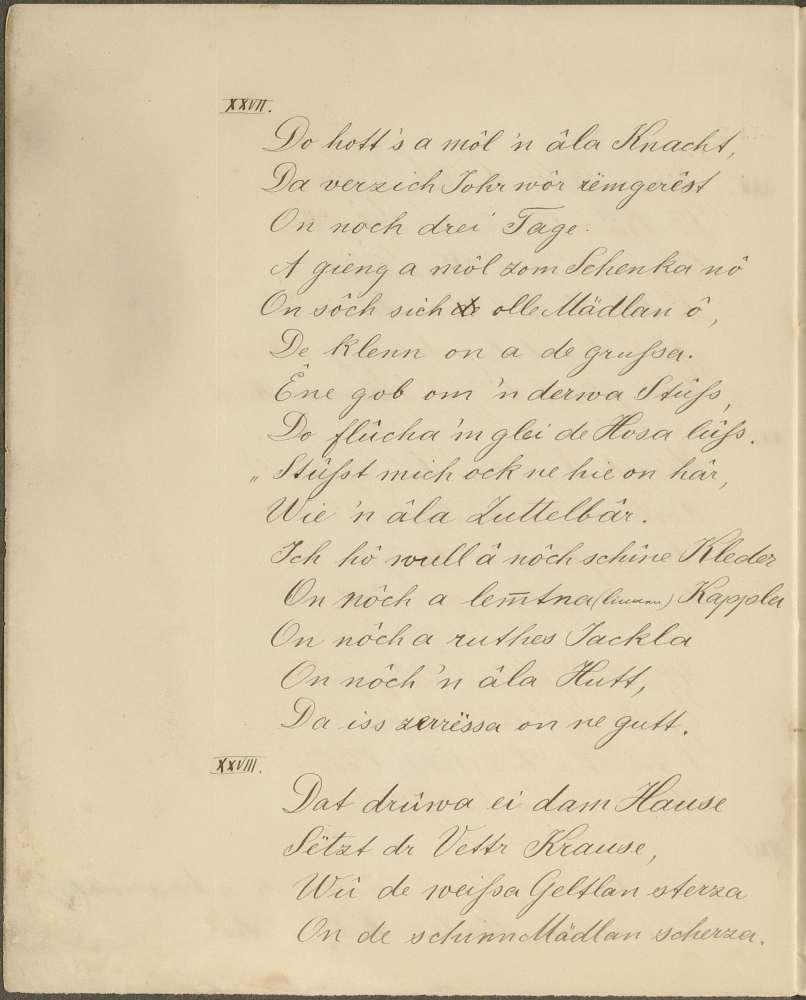 XXVII.
Do hott's a môl 'n âla Knacht,
Da verzich Johr wôr rëmgerêst
On noch drei Tage.
A gieng a môl zom Schenka nô
On sôch sich olle Mädlan ô,
De klenn on a de grußa.
Êne gob om 'n derwa Stûſs,
Do flûcha 'm glei de Hosa lûſs.
„Stûſst mich ock ne hie on hâr,
Wie 'n âla Zuttelbâr.
Ich hô wull â nôch schîne Kleder
On nôch a lem̅tna () Kappla
On nôch a ruthes Jackla
On nôch 'n âla Hutt,
Da iss zerrëssa on ne gutt.
XXVIII.
Dat drûwa ei dam Hause
Sëtzt dr Vettr Krause,
Wû de weiſsa Geltlan sterza
On de schinn Mädlan scherza.